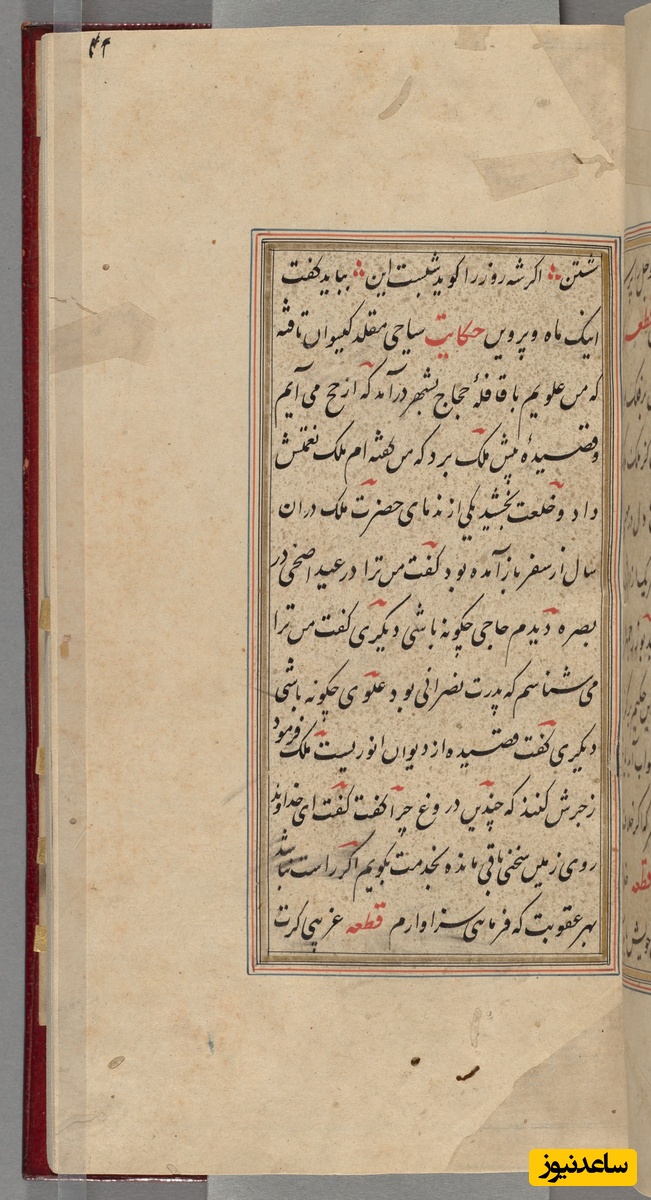 ۴۲
شتن ؞ اکر شه روز را کوید شبست این ؞ بباید کفت
اینک ماه و پروین حکایت سیاحی مقلد کیسوان تافته
که من علویم با قافلهٔ حجاج بشهر درآمد که از حج می آیم
و قصیدهٔ پیش ملک برد که من کفته ام ملک نعمتش
داد و خلعت بخشید یکی از ندمای حضرت ملک دران
سال از سفر باز آمده بود کفت من ترا در عید اضحی در
بصره دیدم حاجی چکونه باشی دیکری کفت من ترا
می شناسم که پدرت نصرانی بود علوی چکونه باشی
دیکری کفت قصیده از دیوان انوریست ملک فرمود
زجرش کنند که چندین دروغ چرا کفت کفت ای خداوند
روی زمین سخنی باقی مانده بخدمت بکویم اکر راست نباشد
بهر عقوبت که فرمایی سزاوارم قطعه غریبی کرت
ساعدنیوز